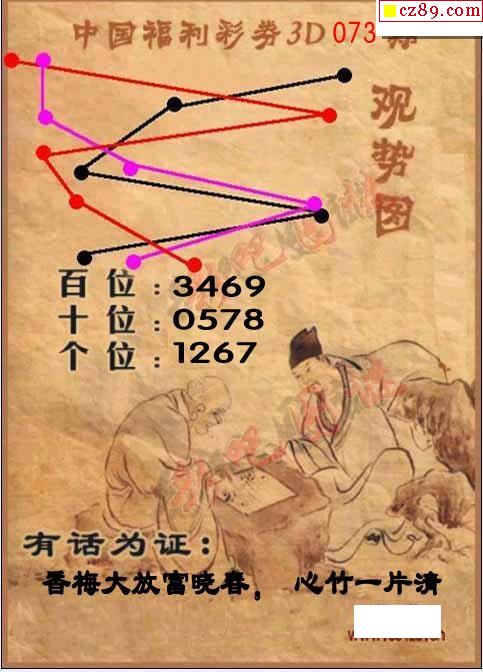 cz89.com
中国福利彩券3D 073
观势图
百位：3469
十位：0578
个位：1267
彩吧图社
彩吧图社
有话为证：
香梅大放富晓春，心竹一片清